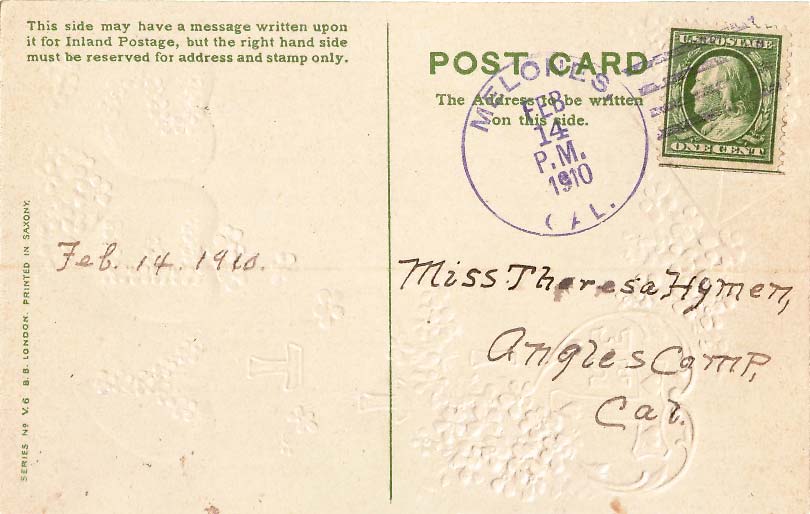 This side may have a message written upon
it for Inland Postage, but the right hand side
must be reserved for address and stamp only.
POST CARD
The Address to be written
on this side.
MELONES,
FEB
14
P.M.
1910
CAL.
U.S. POSTAGE
ONE CENT
SERIES Nº V.6 B.B. LONDON. PRINTED IN SAXONY.
Feb. 14. 1910.
Miss Theresa Hymen,
Angles Camp,
Cal.